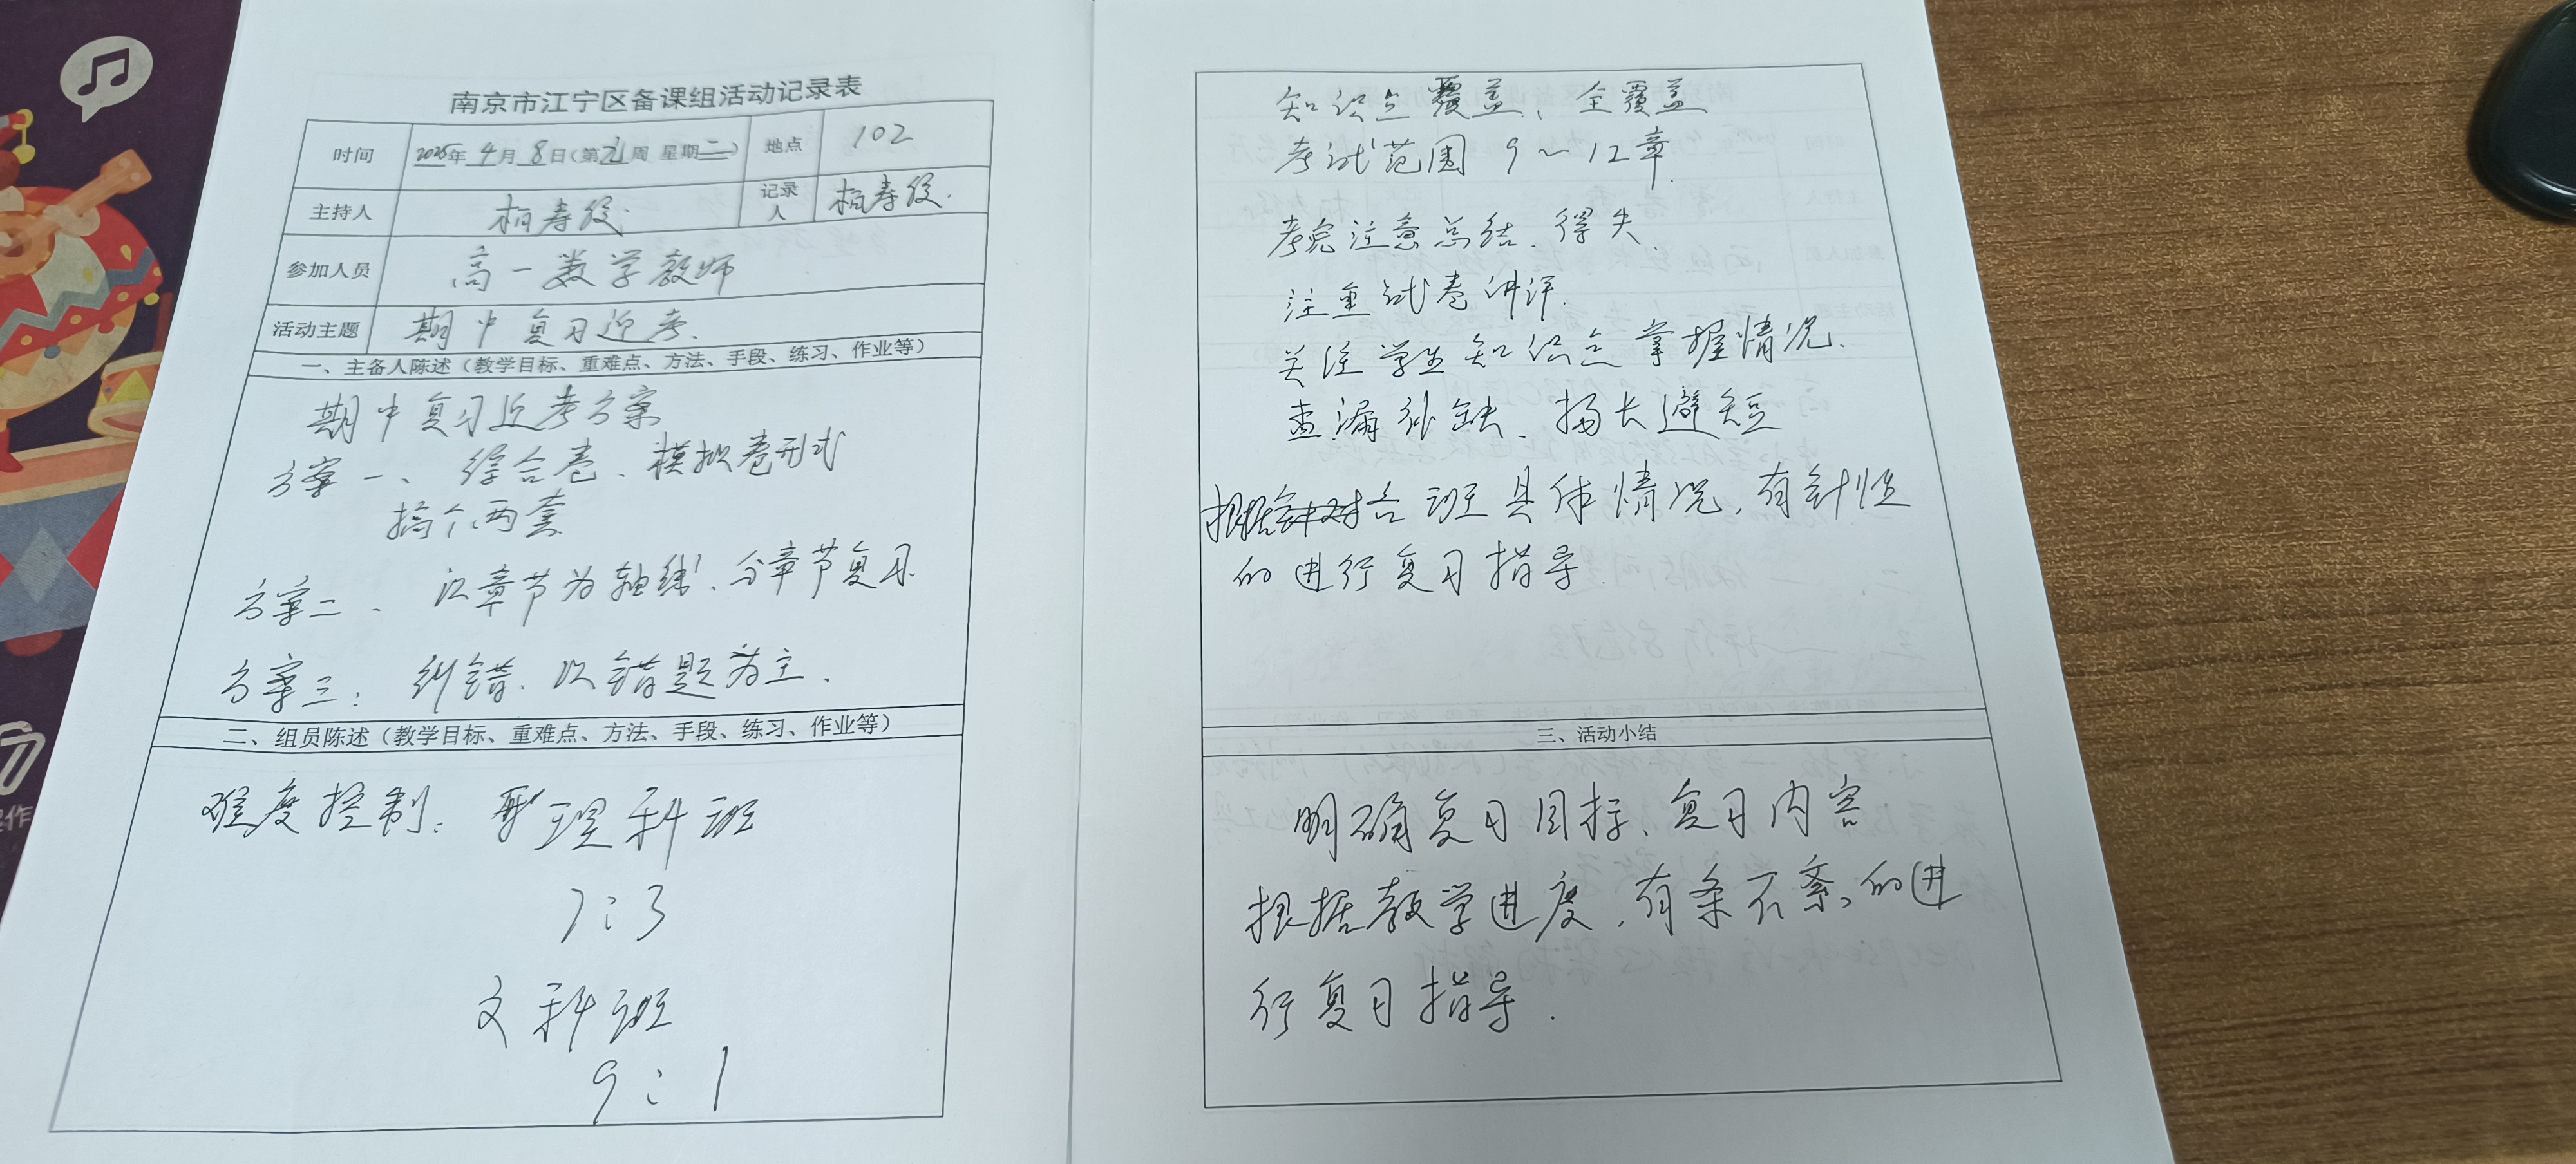 南京市江宁区备课组活动记录表
时间 2025年 4月 8日(第九周 星期二) 地点 102
主持人 柏寿 记录人 柏寿
参加人员 高一数学教师
活动主题 期中复习迎考.
一、主备人陈述(教学目标、重难点、方法、手段、练习、作业等)
期中复习迎考方案
方案一、综合卷、模拟卷形式
搞个两套
方案二、以章节为轴线、分章节复习.
方案三: 纠错.以错题为主.
二、组员陈述(教学目标、重难点、方法、手段、练习、作业等)
难度控制: 理科班
7:3
文科班
9:1
知识点覆盖、全覆盖
考试范围 9~12章.
考完注意总结.得失.
注重试卷讲评.
关注学生知识点掌握情况.
查漏补缺、扬长避短
根据各班具体情况,有针性
的进行复习指导.
三、活动小结
明确复习目标、复习内容
根据教学进度,有条不紊的进
行复习指导.
作